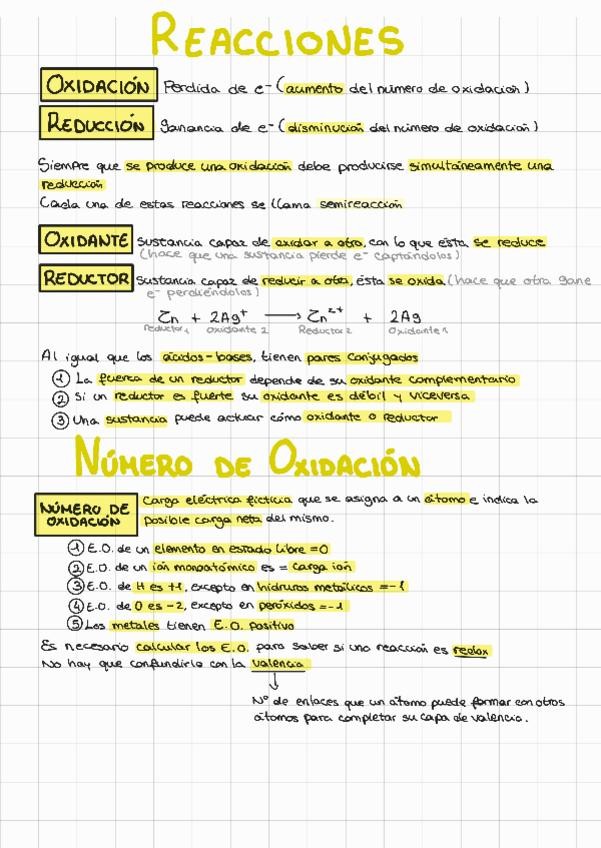 REACCIONES
OXIDACIÓN Pérdida de e- (aumento del número de oxidación)
REDUCCIÓN Ganancia de e- (disminución del número de oxidación)
Siempre que se produce una oxidación debe producirse simultáneamente una
reducción
Cada una de estas reacciones se llama semireacción
OXIDANTE Sustancia capaz de oxidar a otra, con lo que ésta se reduce
(hace que una sustancia pierde e- captándolos)
REDUCTOR Sustancia capaz de reducir a otra, ésta se oxida (hace que otra gane
e- perdiéndolos)
Zn + 2Ag⁺ ⟶ Zn²⁺ + 2Ag
Reductor₁ Oxidante 2 Reductor 2 Oxidante 1
Al igual que los ácidos-bases, tienen pares conjugados
① La fuerza de un reductor depende de su oxidante complementario
② Si un reductor es fuerte su oxidante es débil y viceversa
③ Una sustancia puede actuar cómo oxidante o reductor
NÚMERO DE OXIDACIÓN
NÚMERO DE OXIDACIÓN Carga eléctrica ficticia que se asigna a un átomo e indica la
posible carga neta del mismo.
① E.O. de un elemento en estado libre = 0
② E.O. de un ión monoatómico es = carga ión
③ E.O. de H es +1, excepto en hidruros metálicos = -1
④ E.O. de O es -2, excepto en peróxidos = -1
⑤ Los metales tienen E.O. positivo
Es necesario calcular los E.O. para saber si una reacción es redox
No hay que confundirlo con la valencia
↓
Nº de enlaces que un átomo puede formar con otros
átomos para completar su capa de valencia.